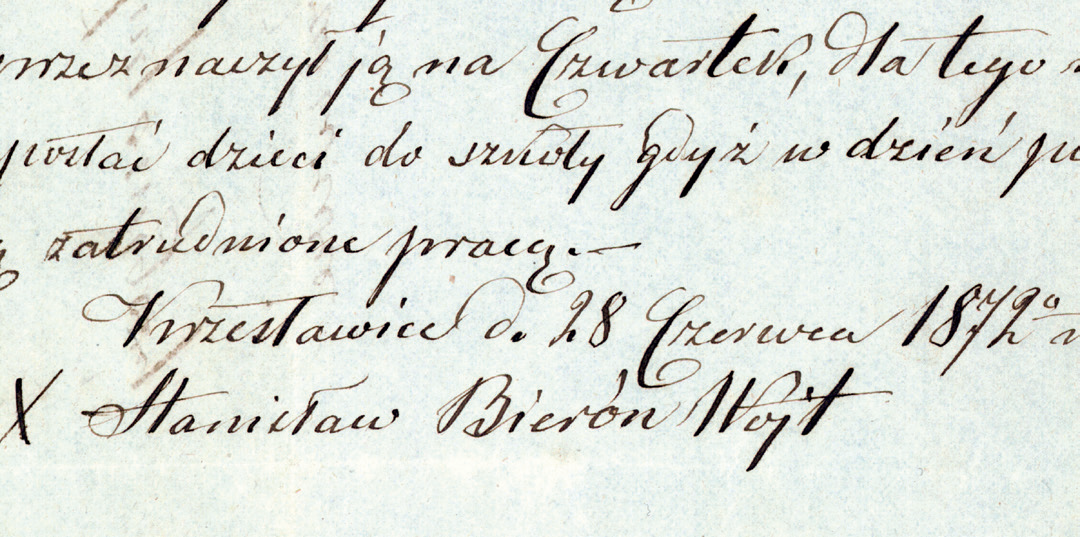 przeznaczył ją na Czwartek, dla tego
posłać dzieci do szkoły gdyż w dzień
zatrudnione pracą.—
Krzesławice d. 28 Czerwca 1872º
X Stanisław Bieroń Wójt